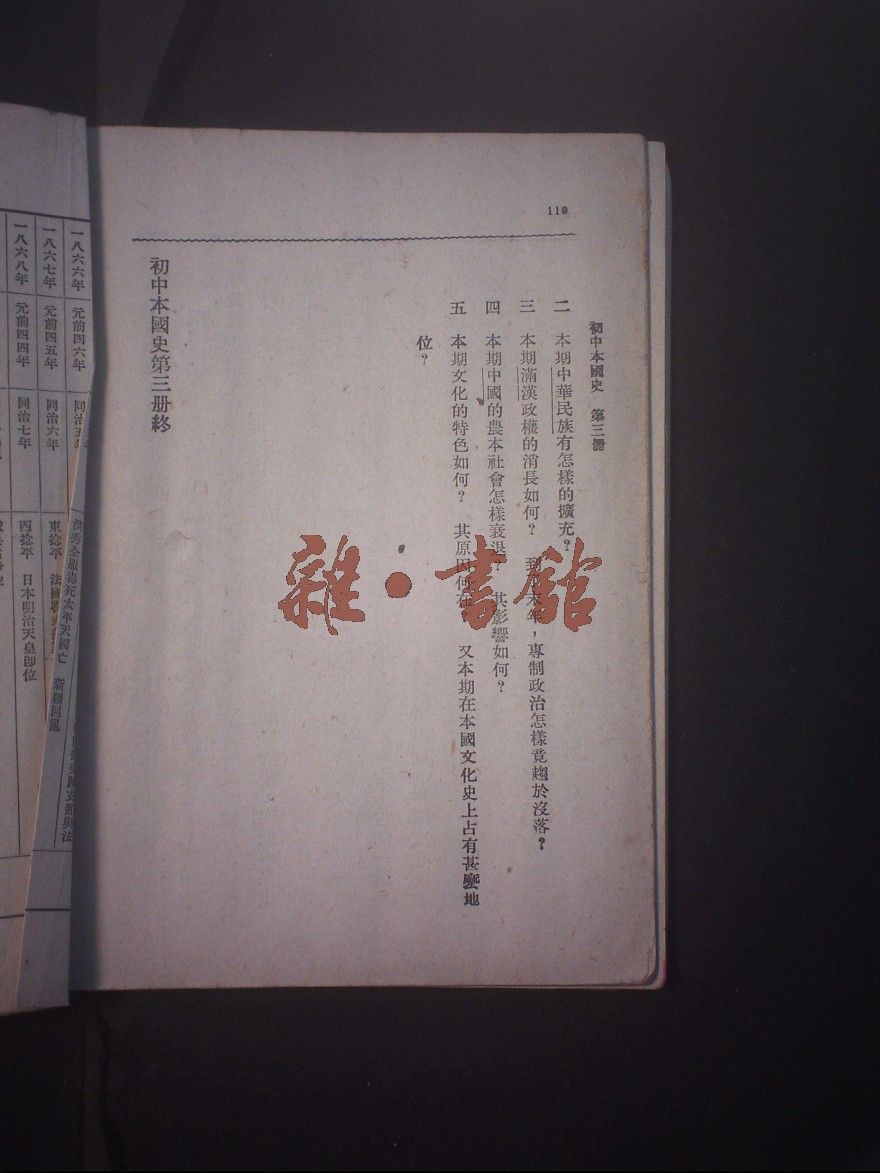 110
初中本國史　第三冊
二　本期中華民族有怎樣的擴充？
三　本期滿漢政權的消長如何？　到末年，專制政治怎樣竟趨於沒落？
四　本期中國的農本社會怎樣衰退？　其影響如何？
五　本期文化的特色如何？　其原因何在？　又本期在本國文化史上占有甚麼地
位？
初中本國史第三册終
雜・書館
一八六六年　元前四六年　同治五年
一八六七年　元前四五年　同治六年　東捻平　法國
一八六八年　元前四四年　同治七年　西捻平　日本明治天皇卽位